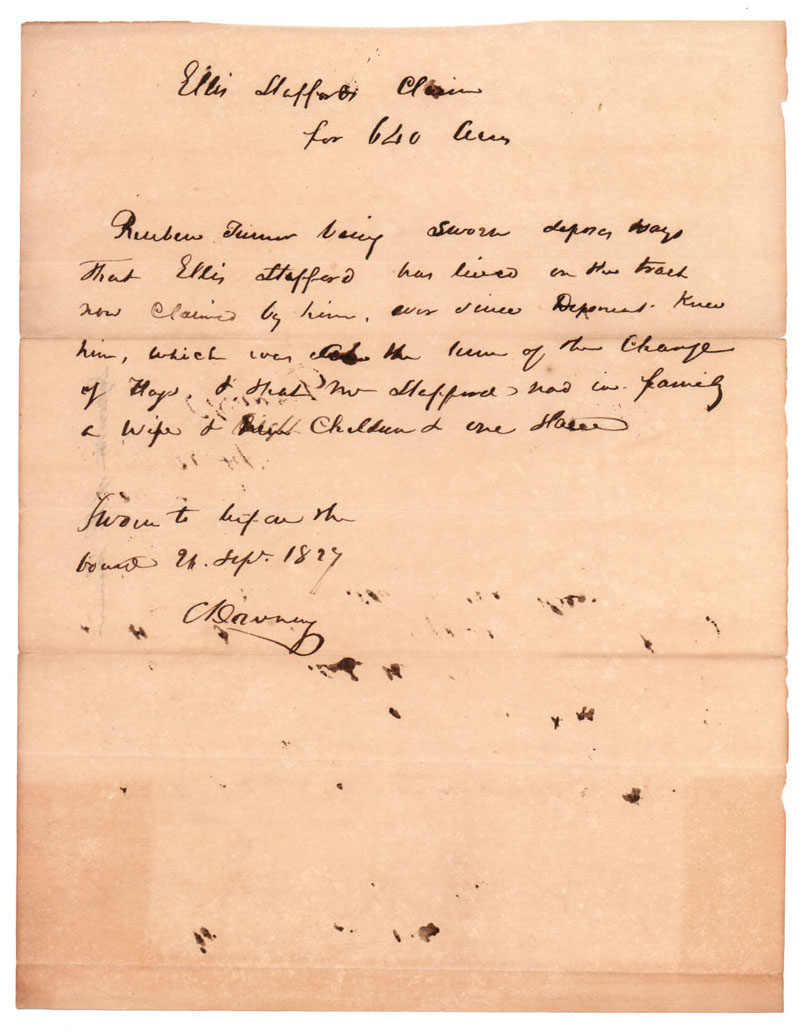 Ellis Staffords Claim
for 640 Acres
Reuben Turner being sworn deposes & says
that Ellis Stafford has lived on the tract
now Claimed by him, ever since Deponent Knew
him, which was at the time of the Change
of flags, & that Mr Stafford had in family
a wife & Children & one Slave
Sworn to before the
board Sept. 1827
C Downing